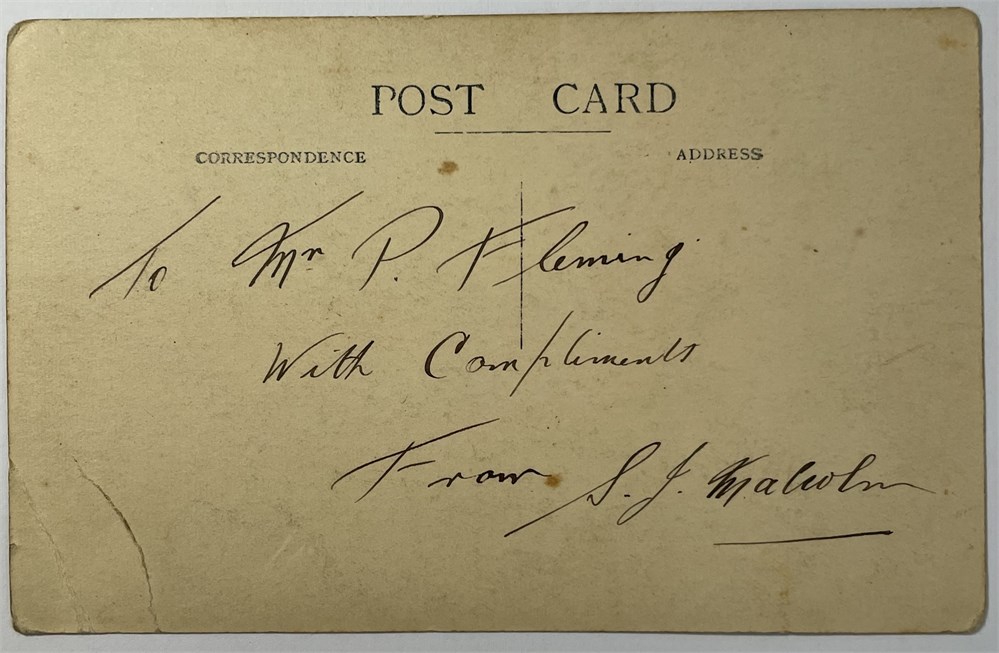 POST CARD
CORRESPONDENCE
ADDRESS
To Mr P. Fleming
With Compliments
From S. J. Malcolm